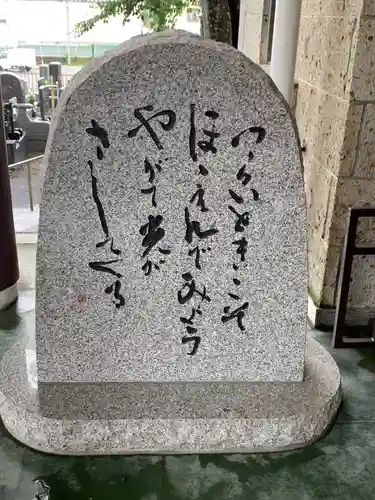 つらいときこそ
ほゝえんでみよう
やがて光が
さしてくる